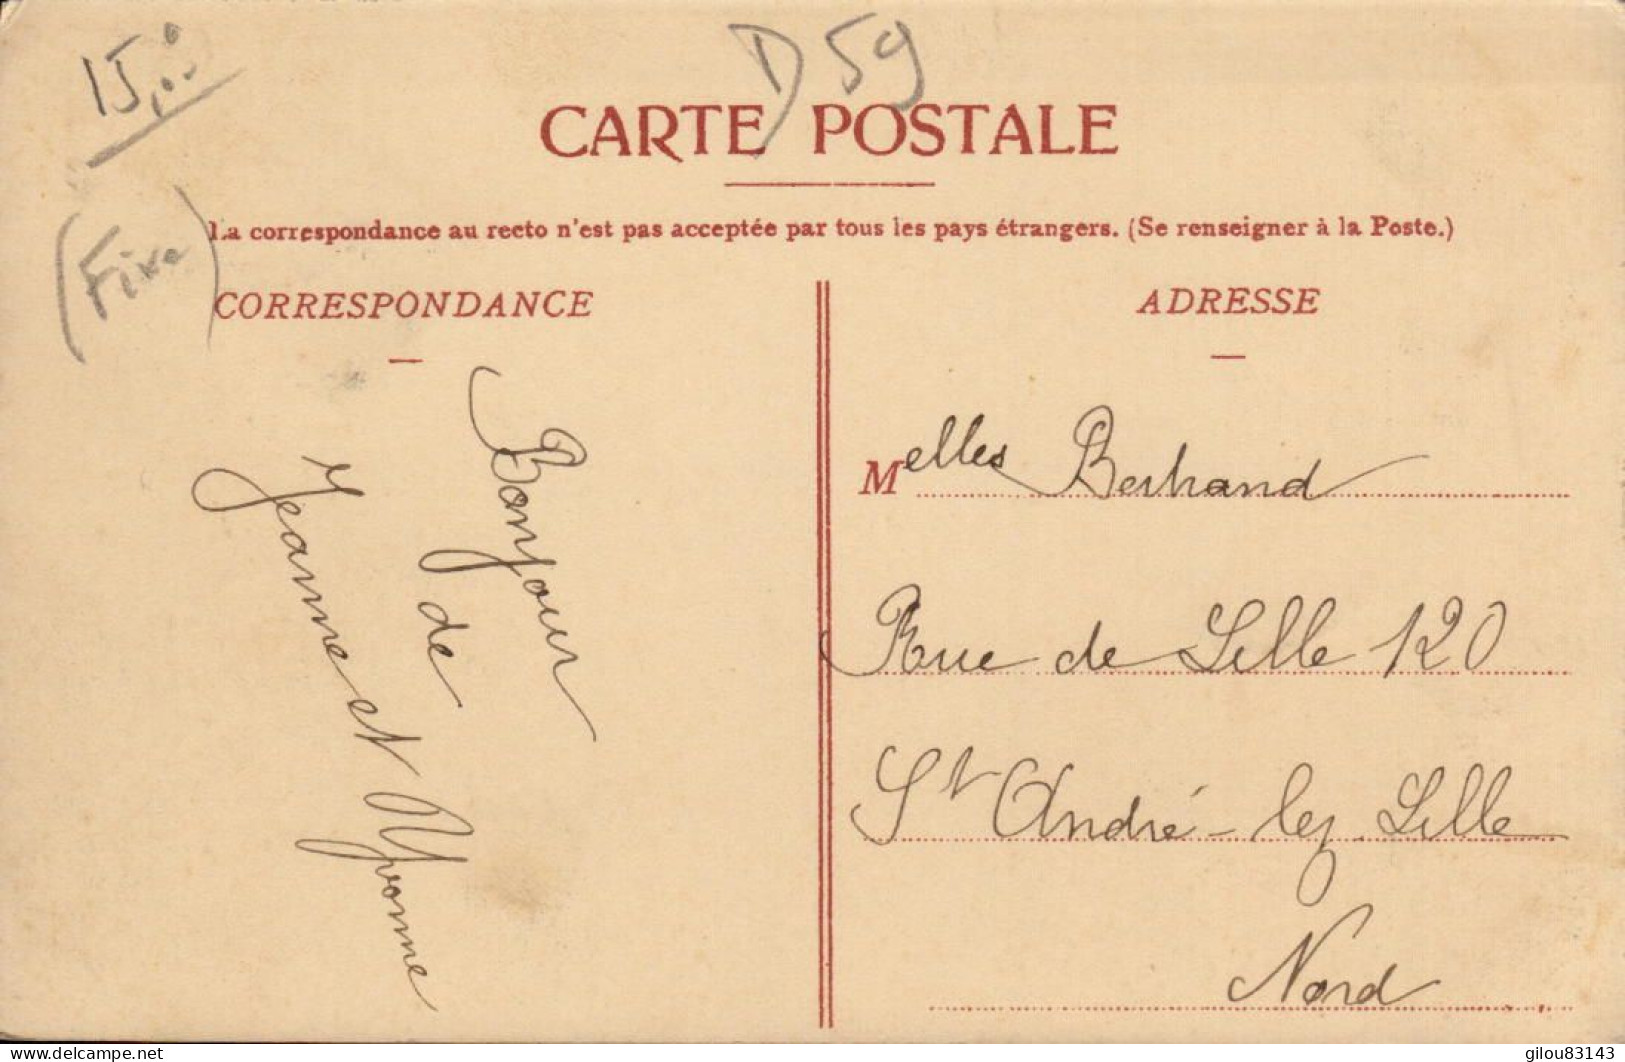 15,00
D 59
CARTE POSTALE
La correspondance au recto n'est pas acceptée par tous les pays étrangers. (Se renseigner à la Poste.)
(Fixe)
CORRESPONDANCE
Bonjour
de
Jeanne et Yvonne
ADRESSE
Melles Bertrand
Rue de Lille 120
St André-lez-Lille
Nord
www.delcampe.net
gilou83143